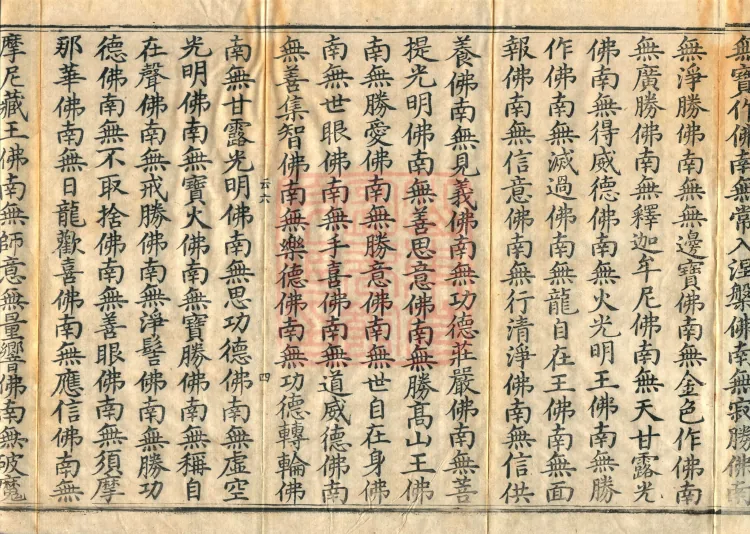 無寶作佛南無常入涅槃佛南無寂勝佛南
無淨勝佛南無無邊寶佛南無金色作佛南
無廣勝佛南無釋迦牟尼佛南無天甘露光
佛南無得威德佛南無火光明王佛南無勝
作佛南無滅過佛南無龍自在王佛南無面
報佛南無信意佛南無行清淨佛南無信供
養佛南無見義佛南無功德莊嚴佛南無菩
提光明佛南無善思意佛南無勝髙山王佛
南無勝愛佛南無勝意佛南無世自在身佛
南無世眼佛南無手喜佛南無道威德佛南
無善集智佛南無樂德佛南無功德轉輪佛
云六 四
南無甘露光明佛南無思功德佛南無虛空
光明佛南無寶火佛南無寶勝佛南無稱自
在聲佛南無戒勝佛南無淨髻佛南無勝功
德佛南無不取捨佛南無善眼佛南無須摩
那華佛南無日龍歡喜佛南無應信佛南無
摩尼藏王佛南無師意無量響佛南無破魔